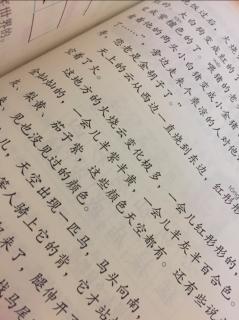 饭过后，火烧
小白狗
紫檀色的了
的两头小白猪变成小金猪
旁边走来个乘凉的人对他
了……您老是金胡子了。”
天上的云从西边一直烧到东边，红彤
空着了火。
这地方的火烧云变化极多，一会儿红彤彤的，
金灿灿的，一会儿半紫半黄，一会儿半灰半百合色。
灰、梨黄、茄子紫，这些颜色天空都有。还有些说
见也没见过的颜色。
儿，天空出现一匹马，马头向南，
等人骑上它的背，它才站
来了，腿伸开
马尾